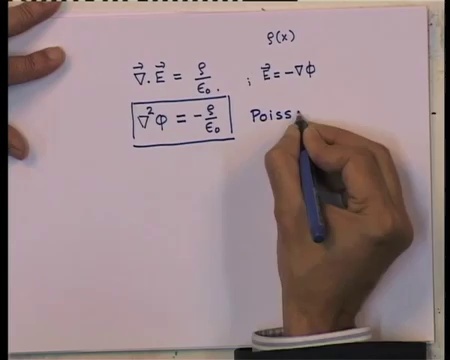 ρ(x)
∇⃗.E⃗ = ρ/ε₀. ; E⃗ = -∇φ
∇²φ = -ρ/ε₀ Poiss